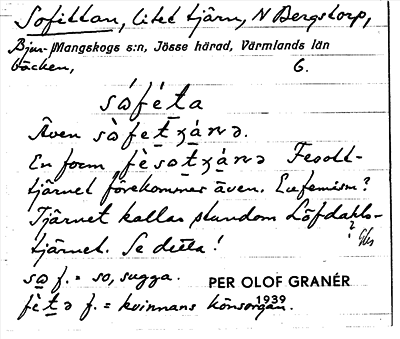 Sofittan, litet tjärn, N Bergstorp,
Bjur- Mangskogs s:n, Jösse härad, Värmlands län
bäcken, 6.
sòféta
Även sòfetʒánə.
En form fèsotʒánə Fesott-
tjärnet förekommer även. Eufemism?
Tjärnet kallas stundom Löfdahls-
tjärnet. Se detta!
so f. = so, sugga.
PER OLOF GRANÉR
1939
fètə f. = kvinnans könsorgan.